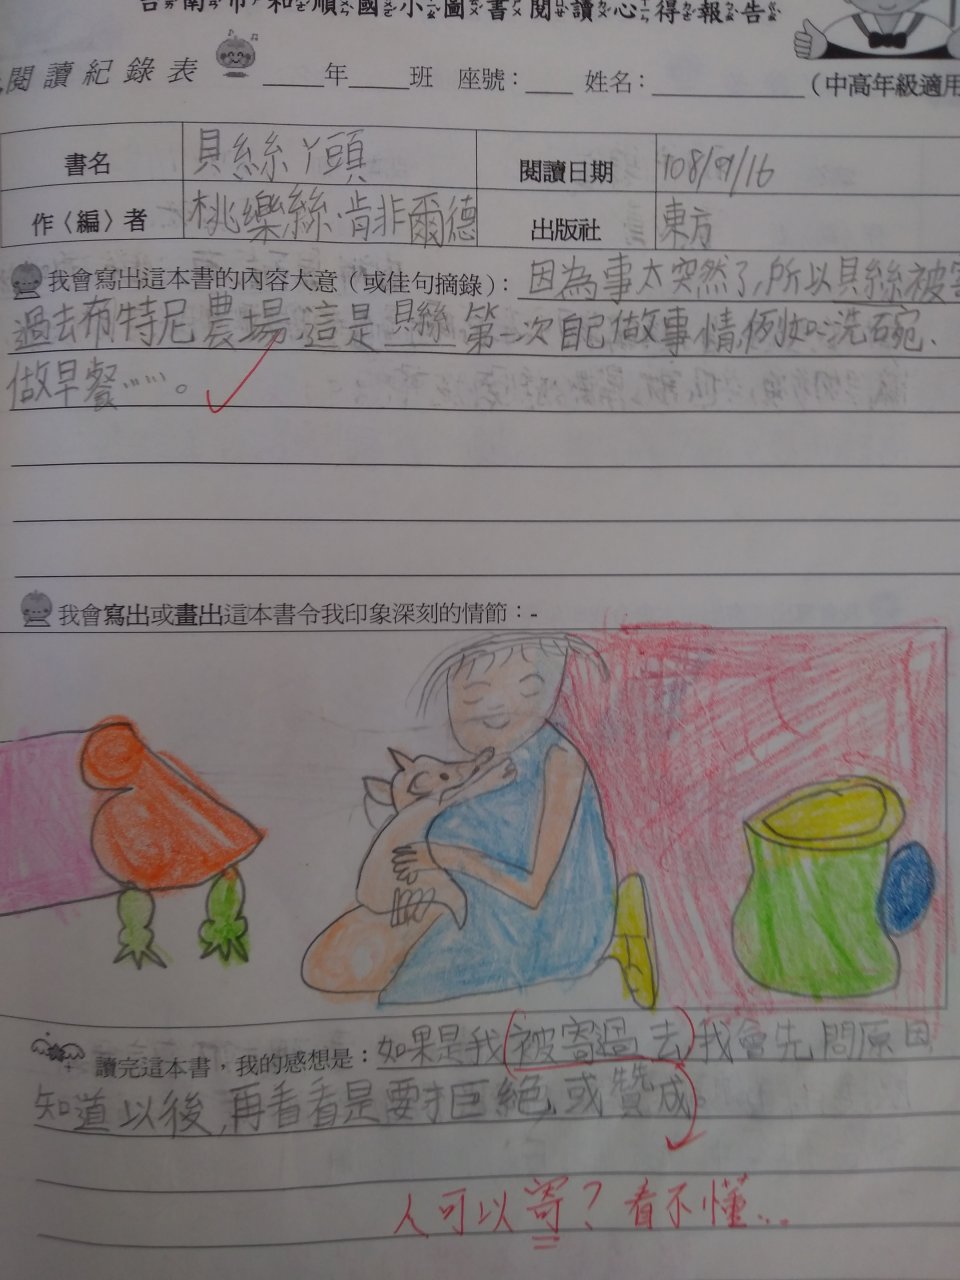 台南市和順國小圖書閱讀心得報告
閱讀紀錄表 ____年____班 座號：____ 姓名：__________（中高年級適用
書名 貝絲丫頭 閱讀日期 108/9/16
作〈編〉者 桃樂絲．肯非爾德 出版社 東方
我會寫出這本書的內容大意（或佳句摘錄）：因為事太突然了,所以貝絲被寄
過去布特尼農場,這是貝絲第一次自己做故事情,例如:洗碗、
做早餐……。
我會寫出或畫出這本書令我印象深刻的情節：-
讀完這本書，我的感想是：如果是我被寄過去,我會先問原因,
知道以後,再看看是要拒絕,或贊成。
人可以寄？看不懂...